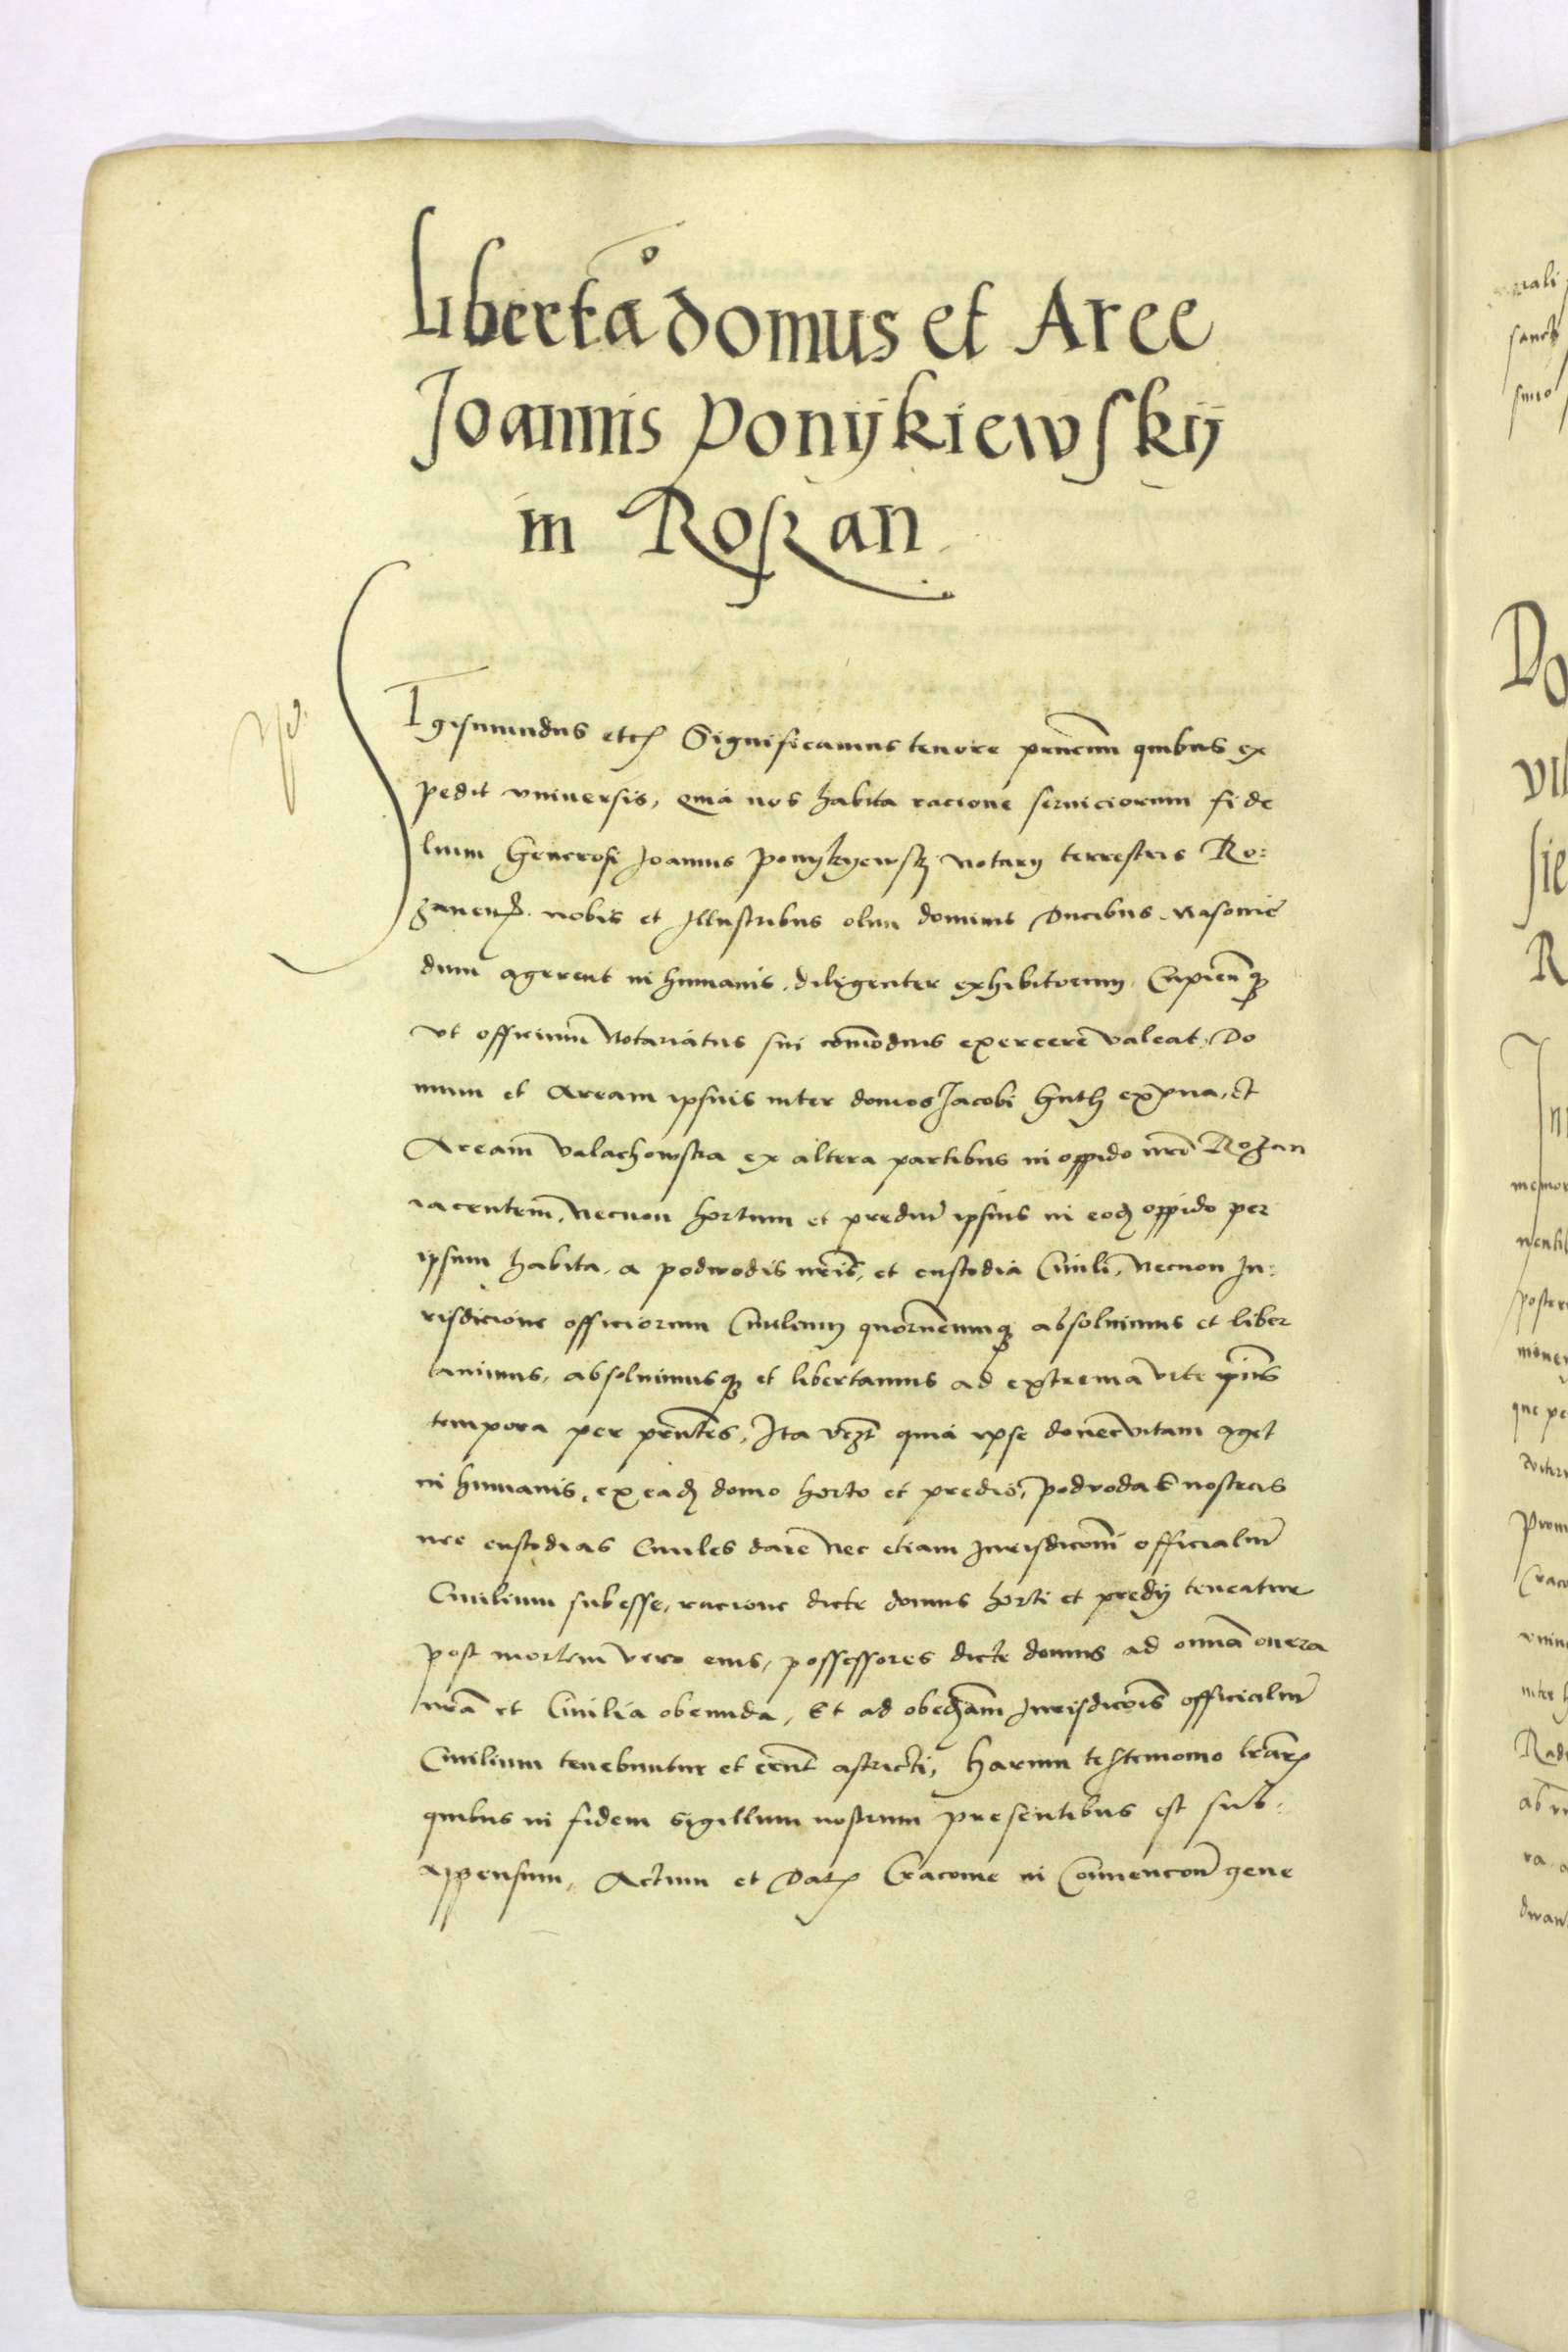 Libertao domus et Aree
Joannis Ponijkiewskij
in Roszan
SIgismundus etc Significamus tenore prncium quibus ex
pedit vniuersis, quia nos habita racione seruiciorum fide
lium Generosi Joannis Ponykyewsky Notarij terrestris Ro:
zanens. nobis et Illustribus olim dominis Ducibus Masouie
dum agerent in humanis, diligenter exhibitorum, Cupienq
vt officium Notariatus sui comodius exercere valeat, Do
mum et Aream ipsius inter domos Jacobi Huth ex vna, et
Aream valachowska ex altera partibus in oppido nro Rozan
iacentem, Necnon hortum et predium ipsius in eod oppido per
ipsum habita, a podwodis nris, et custodia Ciuili, Necnon Ju:
risdicione officiorum Ciuilium quorumcumq absoluimus et liber
tauimus, absoluimusq et libertamus ad extrema vite ipius
tempora per prntes, Ita vezt quia ipse donec vitam aget
in humanis, ex ead domo horto et predio, podvodas nostras
nec custodias Ciuiles dare Nec etiam Jurisdicioni officialium
Ciuilium subesse, racione dicte domus horti et predij teneatur
post mortem vero eius, possessores dicte domus ad omnia onera
nra et Ciuilia obeunda, Et ad obediam Jurisdicois officialium
Ciuilium tenebuntur et erunt astricti, Harum testimonio lrar
quibus in fidem Sigillum nostrum presentibus est sub:
appensum, Actum et Dat Cracouie in Conuencone gene